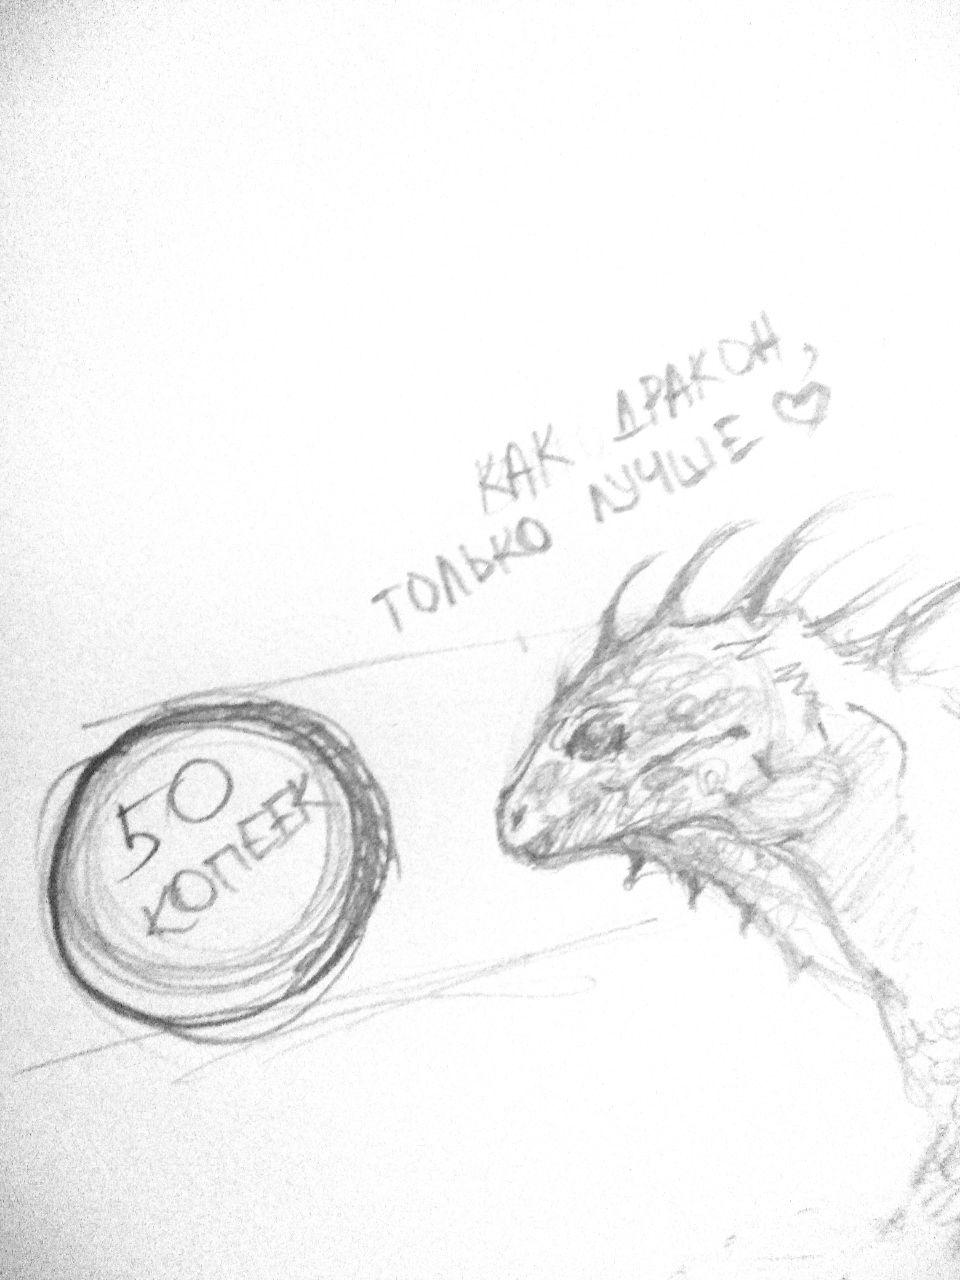 КАК ДРАКОН,
ТОЛЬКО ЛУЧШЕ ♡
50
КОПЕЕК